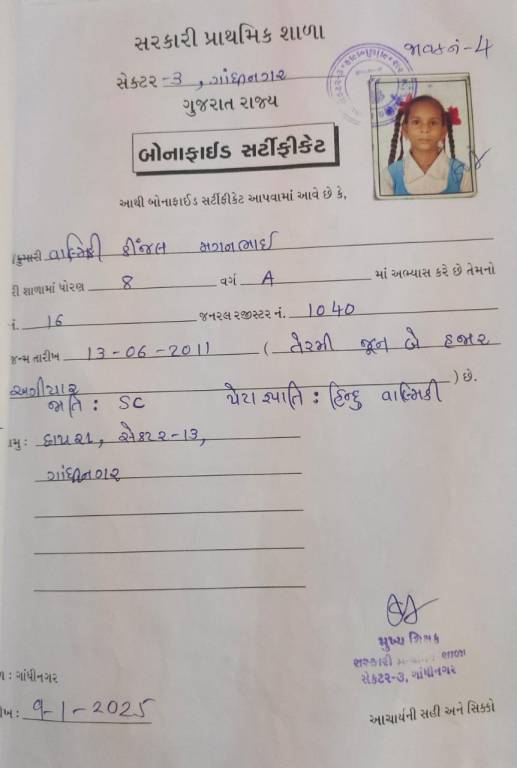 સરકારી પ્રાથમિક શાળા
જાવક નં - 4
સેક્ટર -3, ગાંધીનગર
ગુજરાત રાજ્ય
બોનાફાઈડ સર્ટીફીકેટ
આથી બોનાફાઈડ સર્ટીફીકેટ આપવામાં આવે છે કે,
કુમારી વાલ્મિકી કીંજલ મગનભાઈ
રી શાળામાં ધોરણ 8 વર્ગ A માં અભ્યાસ કરે છે તેમનો
નં. 16 જનરલ રજીસ્ટર નં. 1040
જન્મ તારીખ 13-06-2011 ( તેરમી જૂન બે હજાર
અગીયાર ) છે.
જાતિ : SC પેટા જ્ઞાતિ : હિન્દુ વાલ્મિકી
ામુ : છાપરા, સેક્ટર-13,
ગાંધીનગર
મુખ્ય શિક્ષક
સરકારી પ્રાથમિક શાળા
સેક્ટર-૩, ગાંધીનગર
ળ : ગાંધીનગર
ીખ : 9-1-2025
આચાર્યની સહી અને સિક્કો